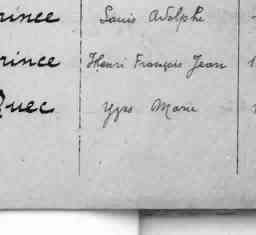 rince Louis Adolphe
rince Henri François Jean
Quec Yves Marie